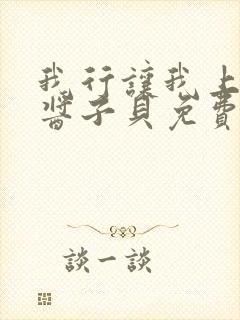 我行讓我上
醬子貝免費
談一談